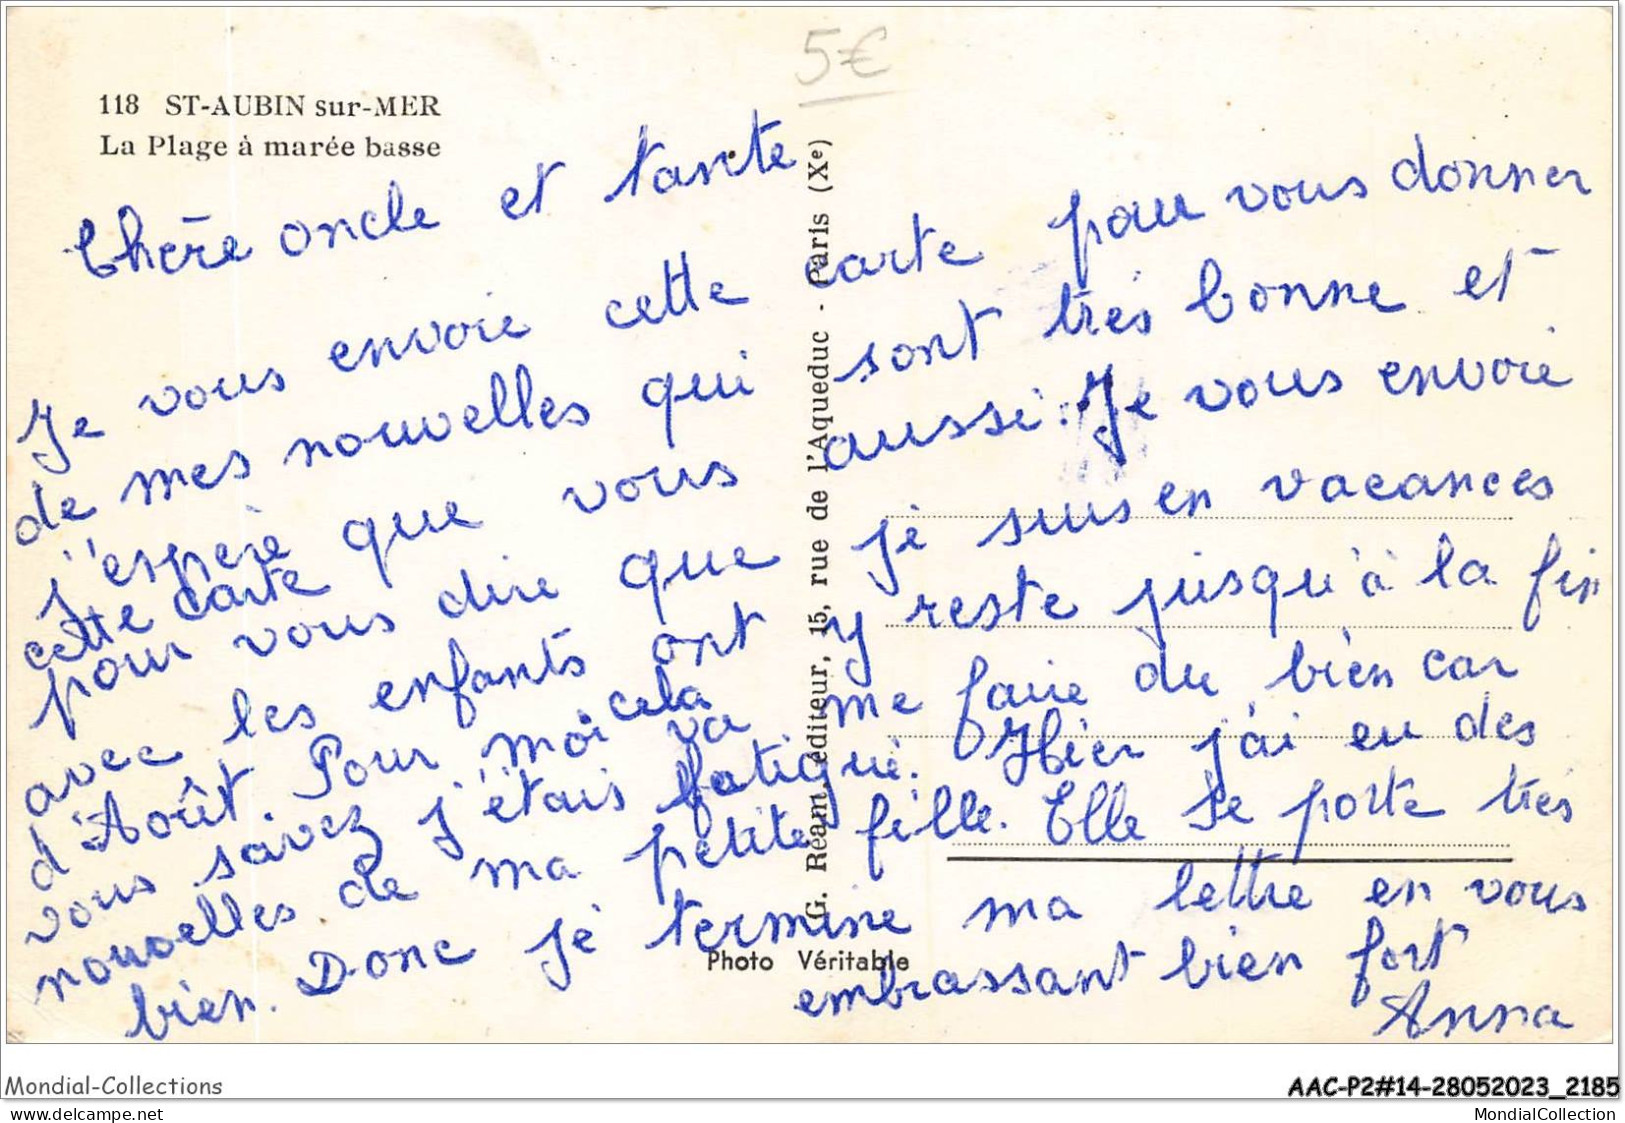 5€
118 ST-AUBIN sur-MER
La Plage à marée basse
Chère oncle et tante
Je vous envoie cette carte pour vous donner
de mes nouvelles qui sont très bonne et
j'espère que vous aussi. Je vous envoie
cette carte
pour vous dire que je suis en vacances
avec les enfants ont y reste jusqu'à la fin
d'Août. Pour moi cela va me faire du bien car
vous savez j'étais fatigué. Hier j'ai eu des
nouvelles de ma petite fille. Elle se porte très
bien. Donc je termine ma lettre en vous
embrassant bien fort
Anna
G. Réant, éditeur, 15, rue de l'Aqueduc - Paris (Xe)
Photo Véritable
Mondial-Collections
AAC-P2#14-28052023_2185
www.delcampe.net
MondialCollection